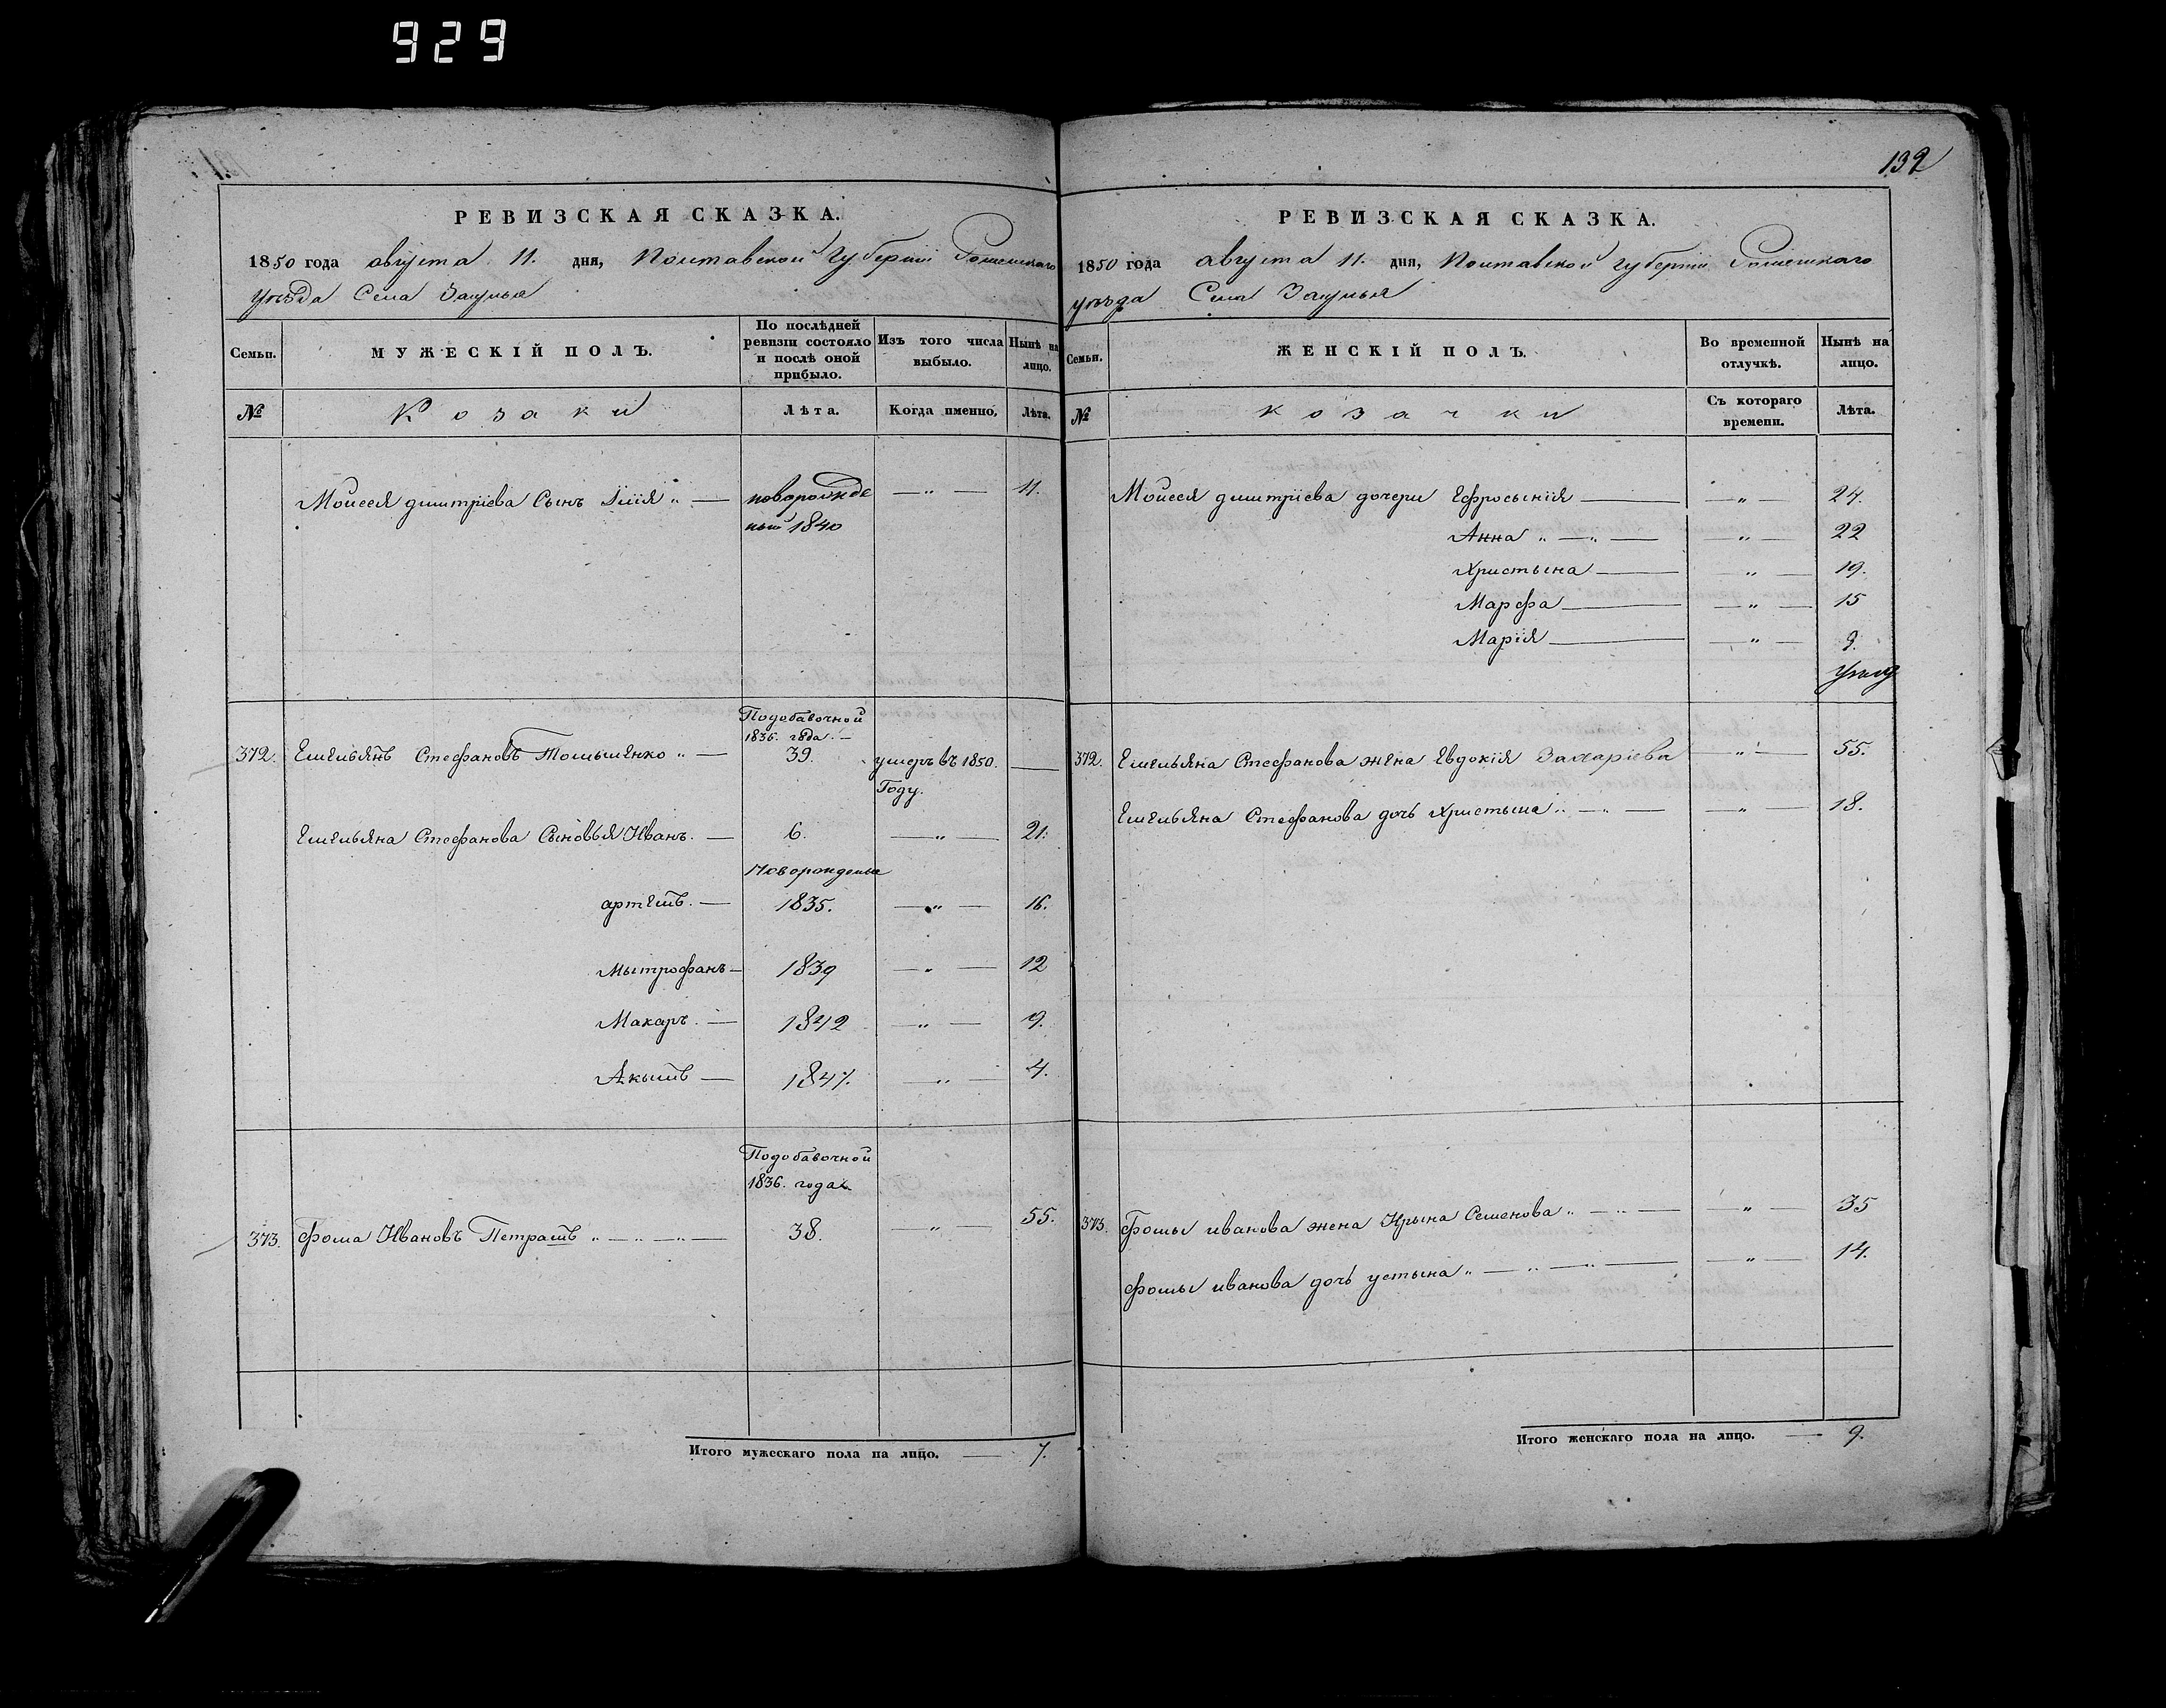 929
132
РЕВИЗСКАЯ СКАЗКА.
1850 года августа 11. дня, Полтавской Губернии Роменскаго
уѣзда Села
Семьи.
МУЖЕСКІЙ ПОЛЪ.
По послѣдней ревизіи состояло и послѣ оной прибыло.
Изъ того числа выбыло.
Нынѣ на лицо.
№
Козаки
Лѣта.
Когда именно,
Лѣта.
Моисея дмитріева Сынъ Илія „ — новорожде — „ — 11.
ный 1840
Подобавочной
1836. года. —
372. Емельянъ Стефановъ Томышенко „ — 39. умеръ въ 1850. —
Году.
Емельяна Стефанова Сыновья Иванъ. — 6. — „ — 21.
Новорожденые
артемъ. — 1835. — „ — 16.
Мытрофанъ — 1839 — „ — 12
Макаръ. — 1842 — „ — 9.
Акымъ — 1847. — „ — 4.
Подобавочной
1836. года
373. Фома Ивановъ Петрашъ „ — „ — „ — 38. — „ — 55.
Итого мужескаго пола на лицо. — 7.
РЕВИЗСКАЯ СКАЗКА.
1850 года августа 11. дня, Полтавской Губерніи Роменскаго
уѣзда Села
Семьи.
ЖЕНСКІЙ ПОЛЪ.
Во временной отлучкѣ.
Нынѣ на лицо.
№
козачки
Съ котораго времени.
Лѣта.
Моисея дмитріева дочери Ефросынія — — „ — 24.
Анна „ — „ — — „ — 22
Христына — — „ — 19.
Марфа — — „ — 15
Марія — — „ — 9.
372. Емельяна Стефанова жена Евдокія Захаріева — „ — 55.
Емельяна Стефанова дочь Христына „ — „ — — „ — 18.
373. Фомы иванова жена Ирына Семенова „ — „ — — „ — 35
Фомы иванова дочь устына „ — „ — „ — — „ — 14.
Итого женскаго пола на лицо. — 9.